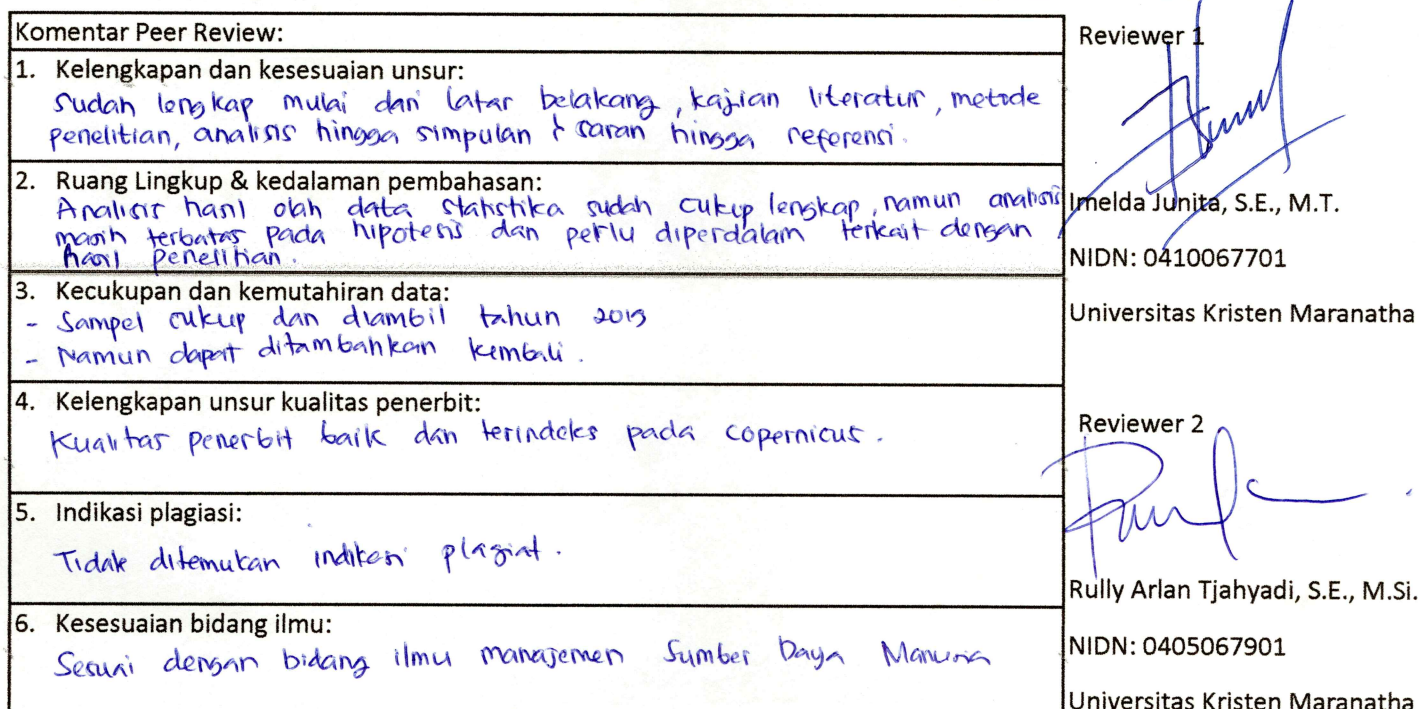 Komentar Peer Review:
1. Kelengkapan dan kesesuaian unsur:
Sudah lengkap mulai dari latar belakang, kajian literatur, metode
penelitian, analisis hingga simpulan & saran hingga referensi.
2. Ruang Lingkup & kedalaman pembahasan:
Analisis hasil olah data statistika sudah cukup lengkap, namun analisis
masih terbatas pada hipotesis dan perlu diperdalam terkait dengan
hasil penelitian.
3. Kecukupan dan kemutahiran data:
- Sampel cukup dan diambil tahun 2019
- Namun dapat ditambahkan kembali.
4. Kelengkapan unsur kualitas penerbit:
Kualitas penerbit baik dan terindeks pada copernicus.
5. Indikasi plagiasi:
Tidak ditemukan indikasi plagiat.
6. Kesesuaian bidang ilmu:
Sesuai dengan bidang ilmu manajemen Sumber Daya Manusia
Reviewer 1
Imelda Junita, S.E., M.T.
NIDN: 0410067701
Universitas Kristen Maranatha
Reviewer 2
Rully Arlan Tjahyadi, S.E., M.Si.
NIDN: 0405067901
Universitas Kristen Maranatha